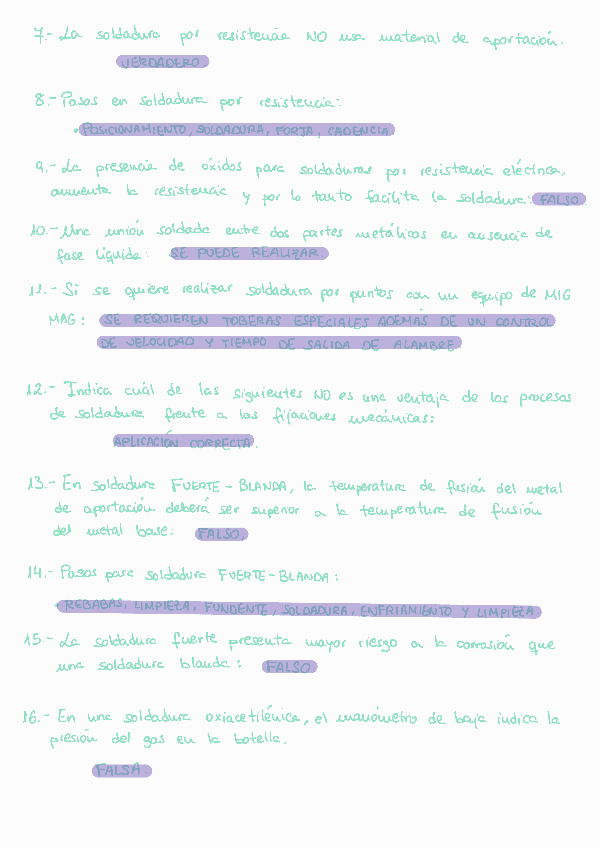 7.- La soldadura por resistencia NO usa material de aportación.
VERDADERO
8.- Pasos en soldadura por resistencia:
• POSICIONAMIENTO, SOLDADURA, FORJA, CADENCIA
9.- La presencia de óxidos para soldaduras por resistencia eléctrica,
aumenta la resistencia y por lo tanto facilita la soldadura: FALSO
10.- Una unión soldada entre dos partes metálicas en ausencia de
fase líquida: SE PUEDE REALIZAR
11.- Si se quiere realizar soldadura por puntos con un equipo de MIG
MAG: SE REQUIEREN TOBERAS ESPECIALES ADEMÁS DE UN CONTROL
DE VELOCIDAD Y TIEMPO DE SALIDA DE ALAMBRE.
12.- Indica cuál de las siguientes NO es una ventaja de los procesos
de soldadura frente a las fijaciones mecánicas:
APLICACIÓN CORRECTA.
13.- En soldadura FUERTE-BLANDA, la temperatura de fusión del metal
de aportación deberá ser superior a la temperatura de fusión
del metal base: FALSO.
14.- Pasos para soldadura FUERTE-BLANDA:
• REBABAS, LIMPIEZA, FUNDENTE, SOLDADURA, ENFRIAMIENTO Y LIMPIEZA
15.- La soldadura fuerte presenta mayor riesgo a la corrosión que
una soldadura blanda: FALSO
16.- En una soldadura oxiacetilénica, el manómetro de baja indica la
presión del gas en la botella.
FALSA.